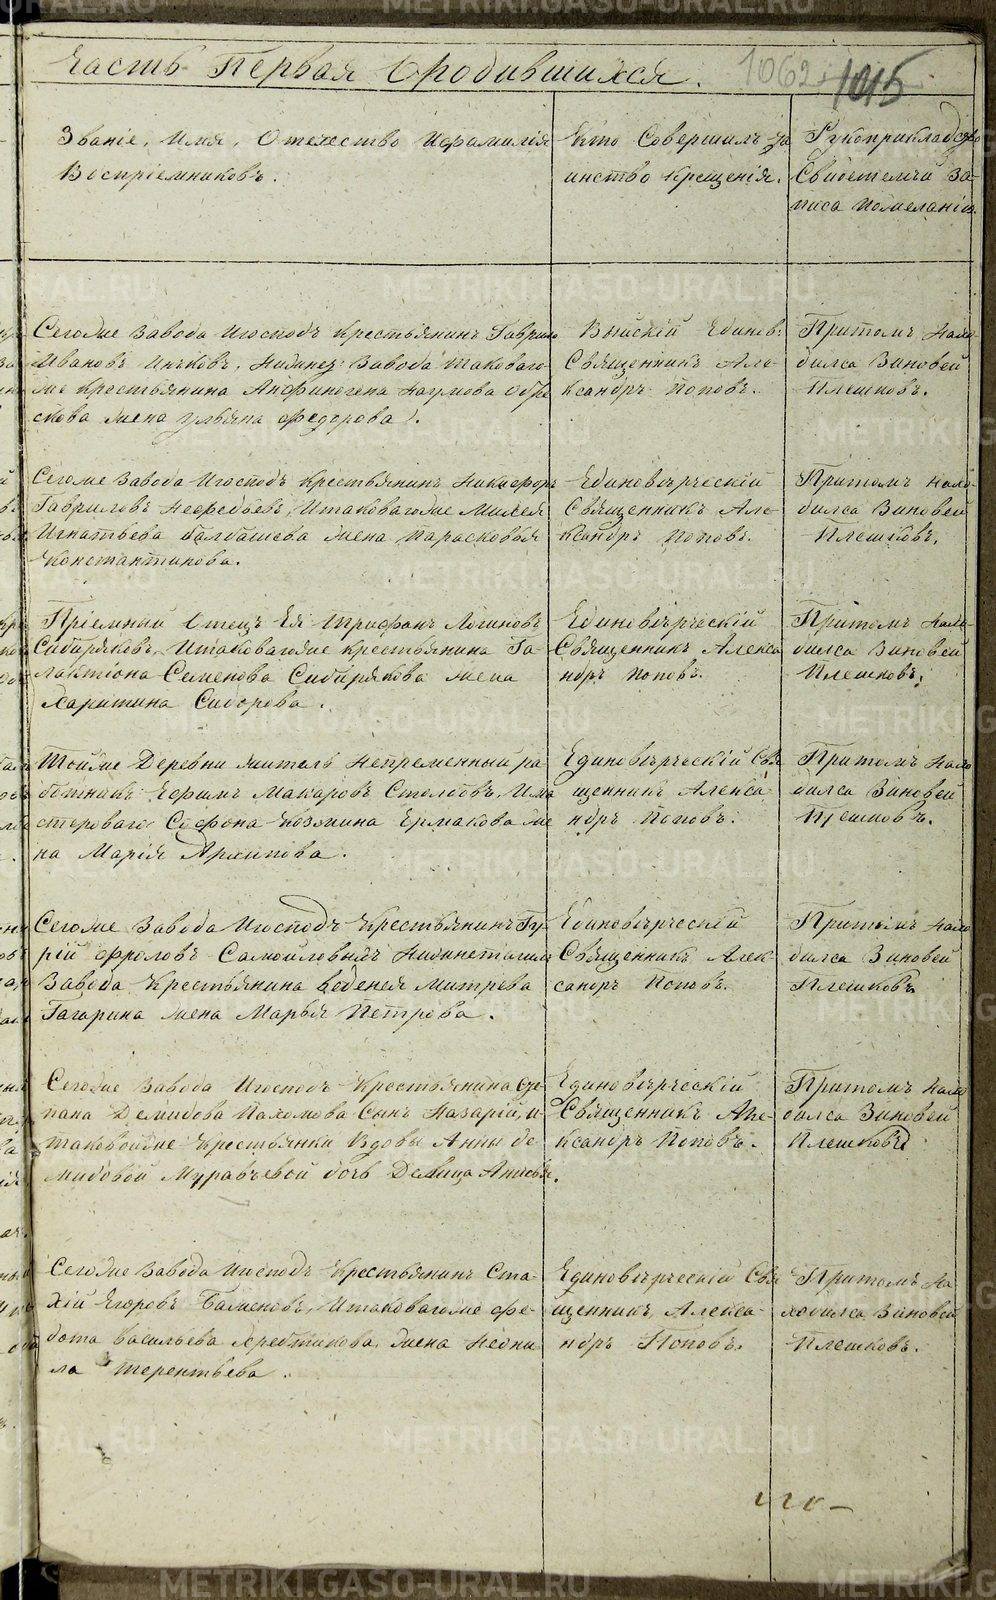 Часть Первая О родившихся.
1062 1015
Званіе, Имя, Отечество Ифамилія
Воспріемниковъ.
Кто Совершилъ та
инство Крещенія.
Рукоприкладство
Свидетелей За-
писа Пожеланію.
Сегоже Завода Игосподъ Крестьянинъ Гаврило
Ивановъ, Завода таковаго-
же Крестьянина Анфиногена Наумова
скова жена Ульяна Федорова.
Единов:
Священникъ Але-
ксандръ Поповъ.
Притомъ нахо
дился Зиновей
Плешковъ.
Сегоже Завода Игосподъ Крестьянинъ Никифоръ
Гавриловъ Нефедьевъ, Итаковагоже
Игнатьева Балбашева жена Парасковья
Константинова.
Единовѣрческій
Священникъ Але-
ксандръ Поповъ.
Притомъ нахо-
дился Зиновей
Плешковъ.
Пріемный Отецъ Ея Трифанъ Логиновъ
Сибиряковъ, Итаковагоже крестьянина Га-
лактіона Семенова Сибирякова жена
Харитина Сидорова.
Единовѣрческій
Священникъ Алекса
ндръ Поповъ.
Притомъ Нахо-
дился Зиновей
Плешковъ.
Тойже Деревни житель Непременный ра
ботникъ Ефимъ Макаровъ Столбовъ, Има
стероваго Софона Козмина Ермакова же
на Марія Архипова.
Единовѣрческій Свя
щенникъ Алекса-
ндръ Поповъ.
Притомъ Нахо
дился Зиновей
Плешковъ.
Сегоже Завода Игосподъ Крестьянинъ Гу-
рій Фроловъ Самойловыхъ Нижнетагил
Завода Крестьянина Веденея Митрева
Гагарина жена Марья Петрова.
Единовѣрческій
Священникъ Алек
сандръ Поповъ.
Притомъ нахо
дился Зиновей
Плешковъ
Сегоже Завода Игосподъ Крестьянина Сте-
пана Демидова Пахомова Сынъ Назарій, и
таковойже Крестьянки Вдовы Анны Де-
мидовой Муравьевой дочь Девица Анисья.
Единовѣрческій
Священникъ Але-
ксандръ Поповъ.
Притомъ Нахо
дился Зиновей
Плешковъ
Сегоже Завода Игосподъ Крестьянинъ Ста-
хій Егоровъ Баженовъ, Итаковагоже Фе-
дота Васильева Хребтикова, жена Неони
ла Терентьева.
Единовѣрческій Свя
щенникъ Алекса-
ндръ Поповъ.
Притомъ На
ходился Зиновей
Плешковъ.
METRIKI.GASO-URAL.RU